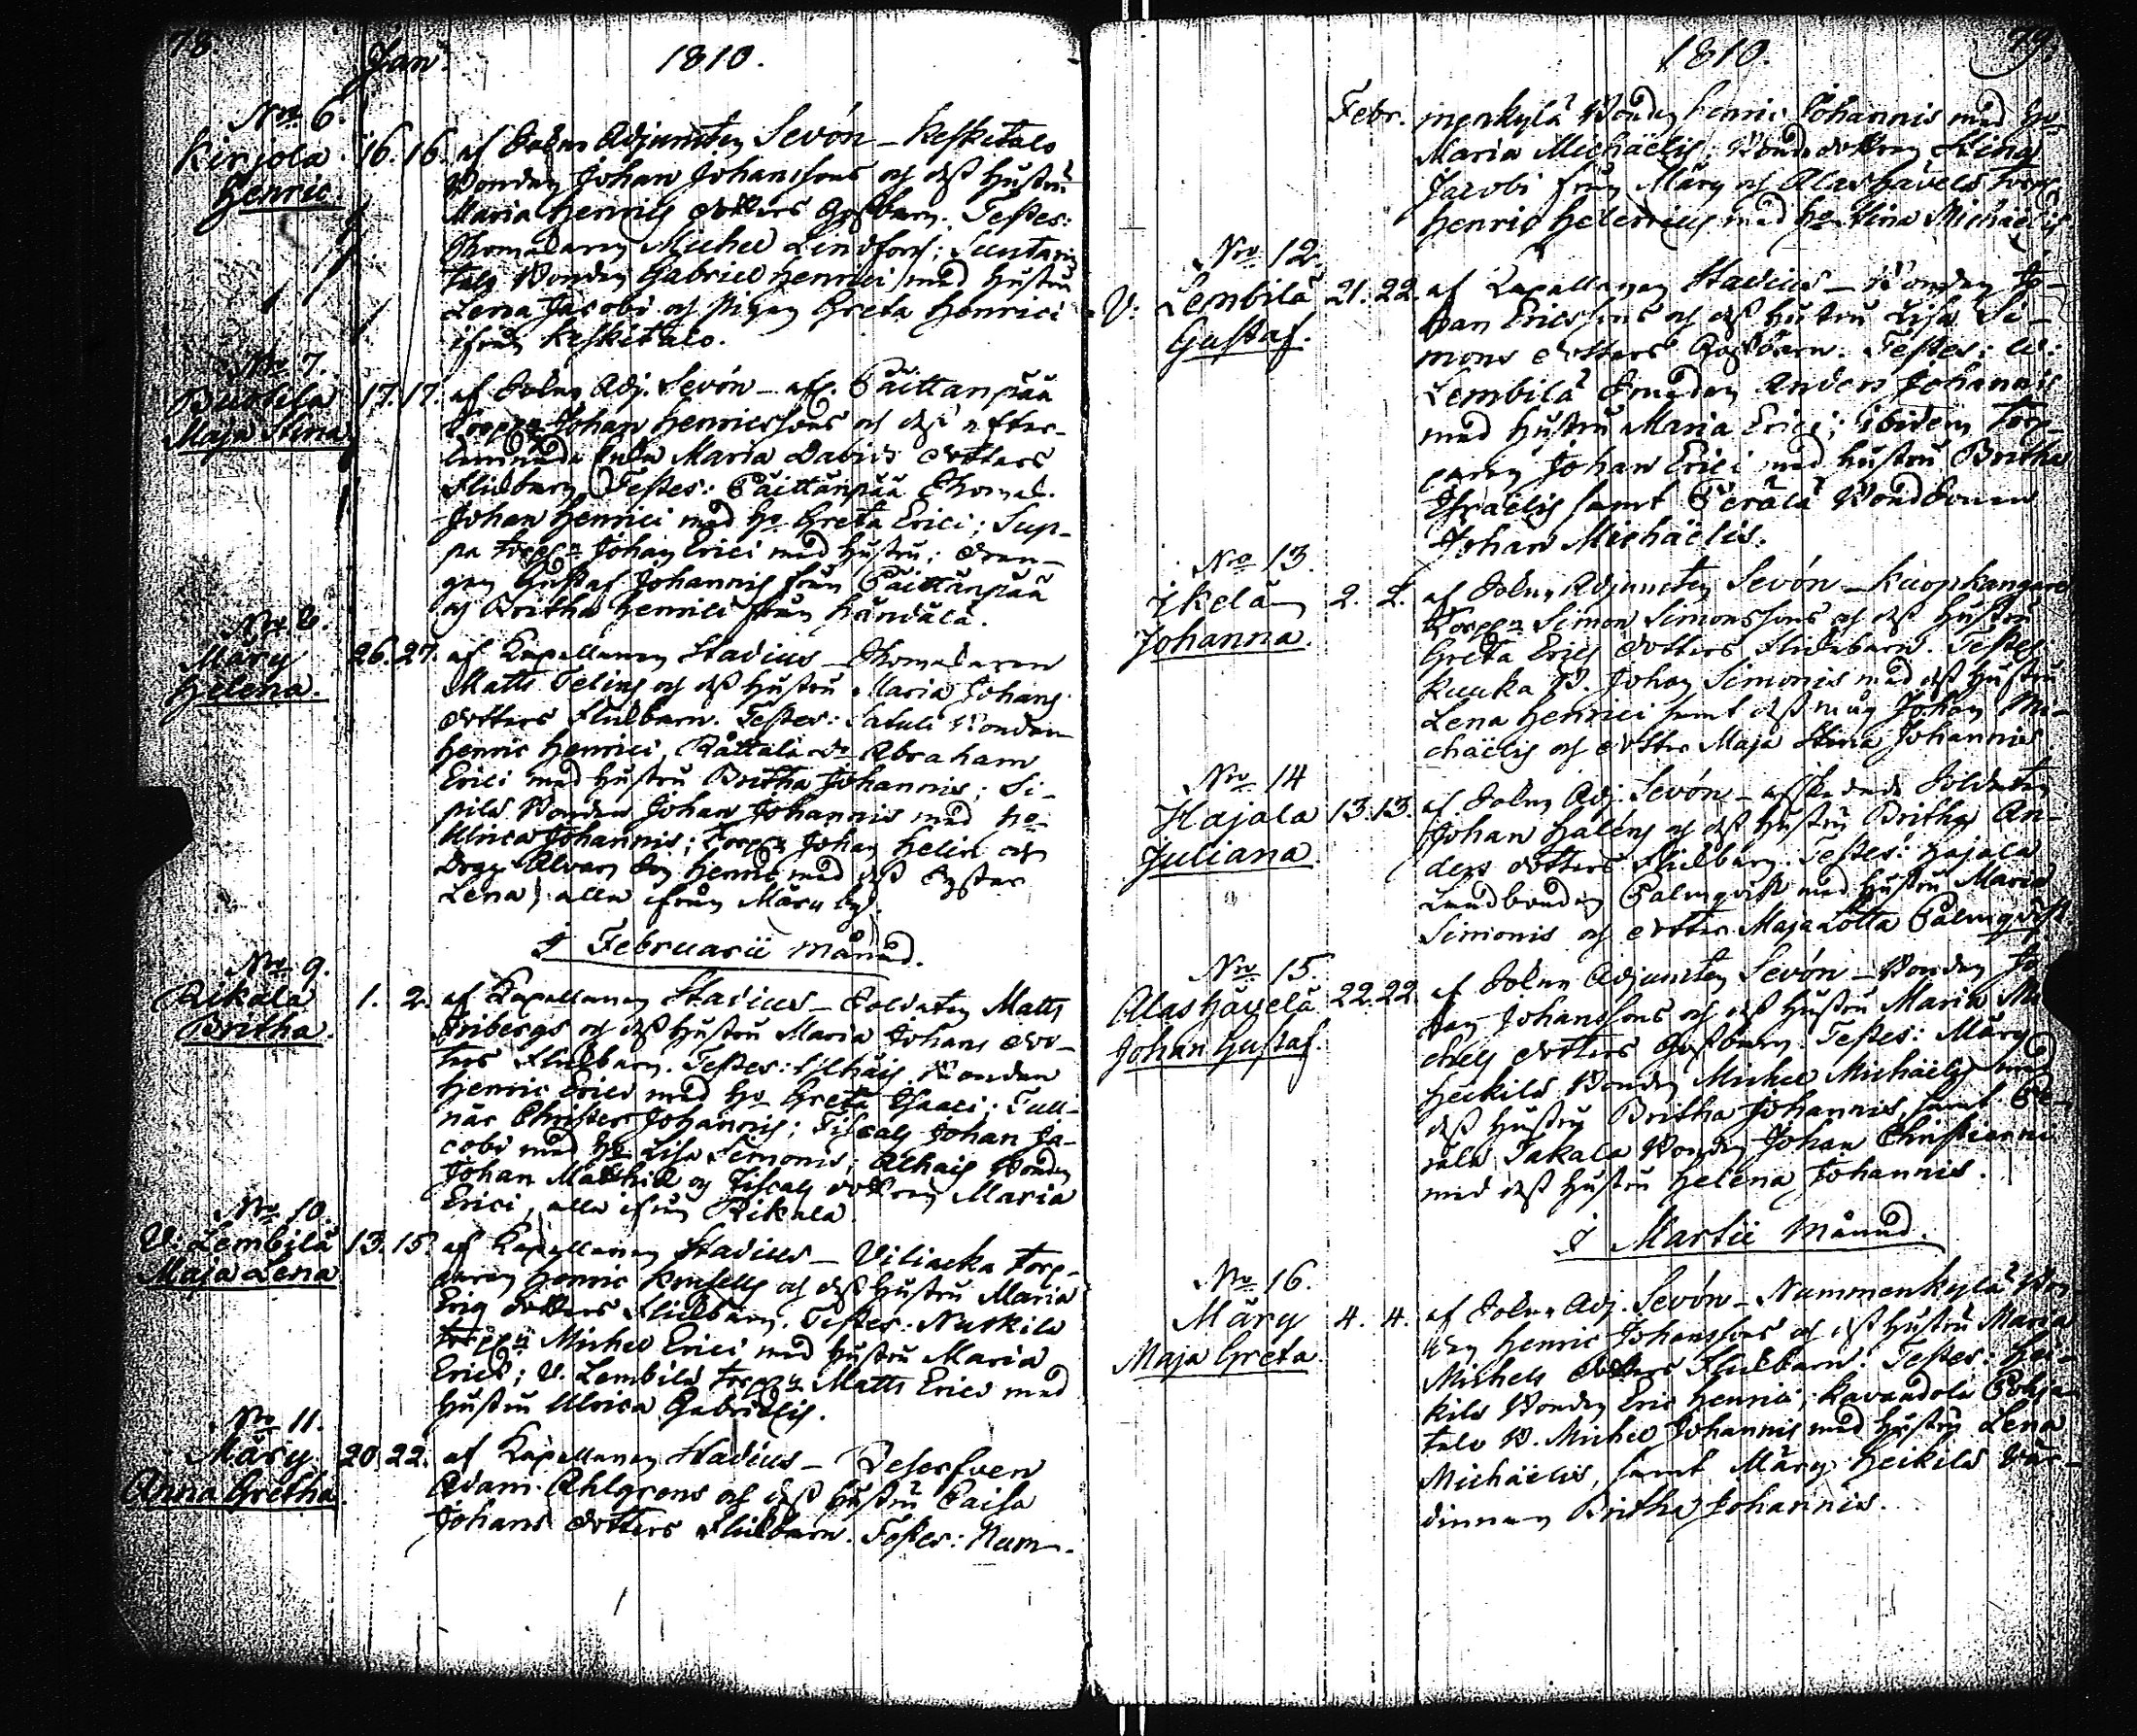 78
Jan.
1810.
No 6.
Kirjola
Henric.
16. 16. af Adjuncten Sevón – Keskitalo
Bonden Johan Johanssons och dess hustru
Maria Henrics dotters Gossbarn. Testes:
Michel Lindfors; Suntarin
talo Bonden Gabriel Henrici med hustru
Lena Jacobi och Pigan Greta Henrici
ifrån Keskitalo.
No 7.
Maja Stina
17. 17. af Adj. Sevón – afl. Päittänpää
Johan Henricssons och dess efter-
lemnade Enka Maria Davids dotters
Flickbarn. Testes: Päittänpää
Johan Henrici med ho Greta Erici;
Johan Erici med hustru; dren-
gen Gustaf Johannis från Päittänpää
och Britha Henrici från
No 8.
Märy
Helena.
26. 27. af Kapellanen Stadius –
Matts Felins och dess hustru Maria Johans
dotters Flickbarn. Testes: Bonden
Henric Henrici, do Abraham
Erici med hustru Britha Johannis; Si-
pilä Bonden Johan Johannis med ho
Ulrica Johannis; Johan Helin och
Henric med dess Syster
Lena; alla ifrån Märy by.
I Februarii Månad.
No 9.
Rikala
Britha.
1. 2. af Kapellanen Stadius – Soldaten Matts
Fribergs och dess hustru Maria Johans dot-
ters Flickbarn. Testes: Bonden
Henric Erici med ho Greta Isaaci;
Christer Johannis; Johan Ja-
cobi med ho Lisa Simonis; Bonden
Johan och dottren Maria
Erici, alla ifrån Rikala.
No 10.
V: Lembilä
Maja Lena
13. 15. af Kapellanen Stadius – Viliacka Torp-
paren Henric och dess hustru Maria
Erics dotters Flickbarn. Testes:
Michel Erici med hustru Maria
Erici; V. Lembilä Matts Erici med
hustru Ulrica Gabrielis.
No 11.
Märy
Anna Gretha.
20. 22. af Kapellanen Stadius –
Adam Ahlgrens och dess hustru Caisa
Johans dotters Flickbarn. Testes: Num-
79.
1810.
Febr. menkylä Bonden Henric Johannis med ho
Maria Michaëlis; Bonde dottren Stina
Jacobi från Märy och Alashävelä
Henric med ho Stina Michaëlis
No 12.
V: Lembilä
Gustaf.
21. 22. af Kapellanen Stadius – Bonden Jo-
han Ericssons och dess hustru Lisa Si-
mons dotters Gossbarn. Testes: V:
Lembilä Anders Johannis
med hustru Maria Erici; ibidem Torp-
paren Johan Erici med hustru Britha
Israëlis samt Perälä Bondsonen
Johan Michaëlis.
No 13.
Ikelä
Johanna.
2. 2. af Adjuncten Sevón –
Simon Simonssons och dess hustru
Greta Erics dotters Flickbarn. Testes:
B. Johan Simonis med dess hustru
Lena Henrici samt dess måg Johan Mi-
chaëlis och dotter Maja Stina Johannis
No 14
Hajala
Juliana.
13. 13. af Adj. Sevón – afskedade Soldaten
Johan Haléns och dess hustru Britha An-
ders dotters Flickbarn. Testes: Hajala
Landbonden Palmqvist med hustru Maria
Simonis och dotter Maja Lotta Palmqvist
No 15.
Alashävelä
Johan Gustaf.
22. 22. af Adjuncten Sevón – Bonden Jo
han Johanssons och dess hustru Maria Mi
chels dotters Gossbarn. Testes: Märy
Heikilä Bonden Michel Michaëlis med
dess hustru Britha Johannis, samt Pe-
rälä Takala Bonden Johan Christierni
med dess hustru Helena Johannis.
I Martii Månad.
No 16.
Märy
Maja Greta.
4. 4. af Adj. Sevón – Nummenkylä Bon-
den Henric Johanssons och dess hustru Maria
Michels dotters Flickbarn. Testes: Hei-
kilä Bonden Eric Henrici;
talo B. Michel Johannis med hustru Lena
Michaëlis, samt Märy Heikilä Vär-
dinnan Britha Johannis.